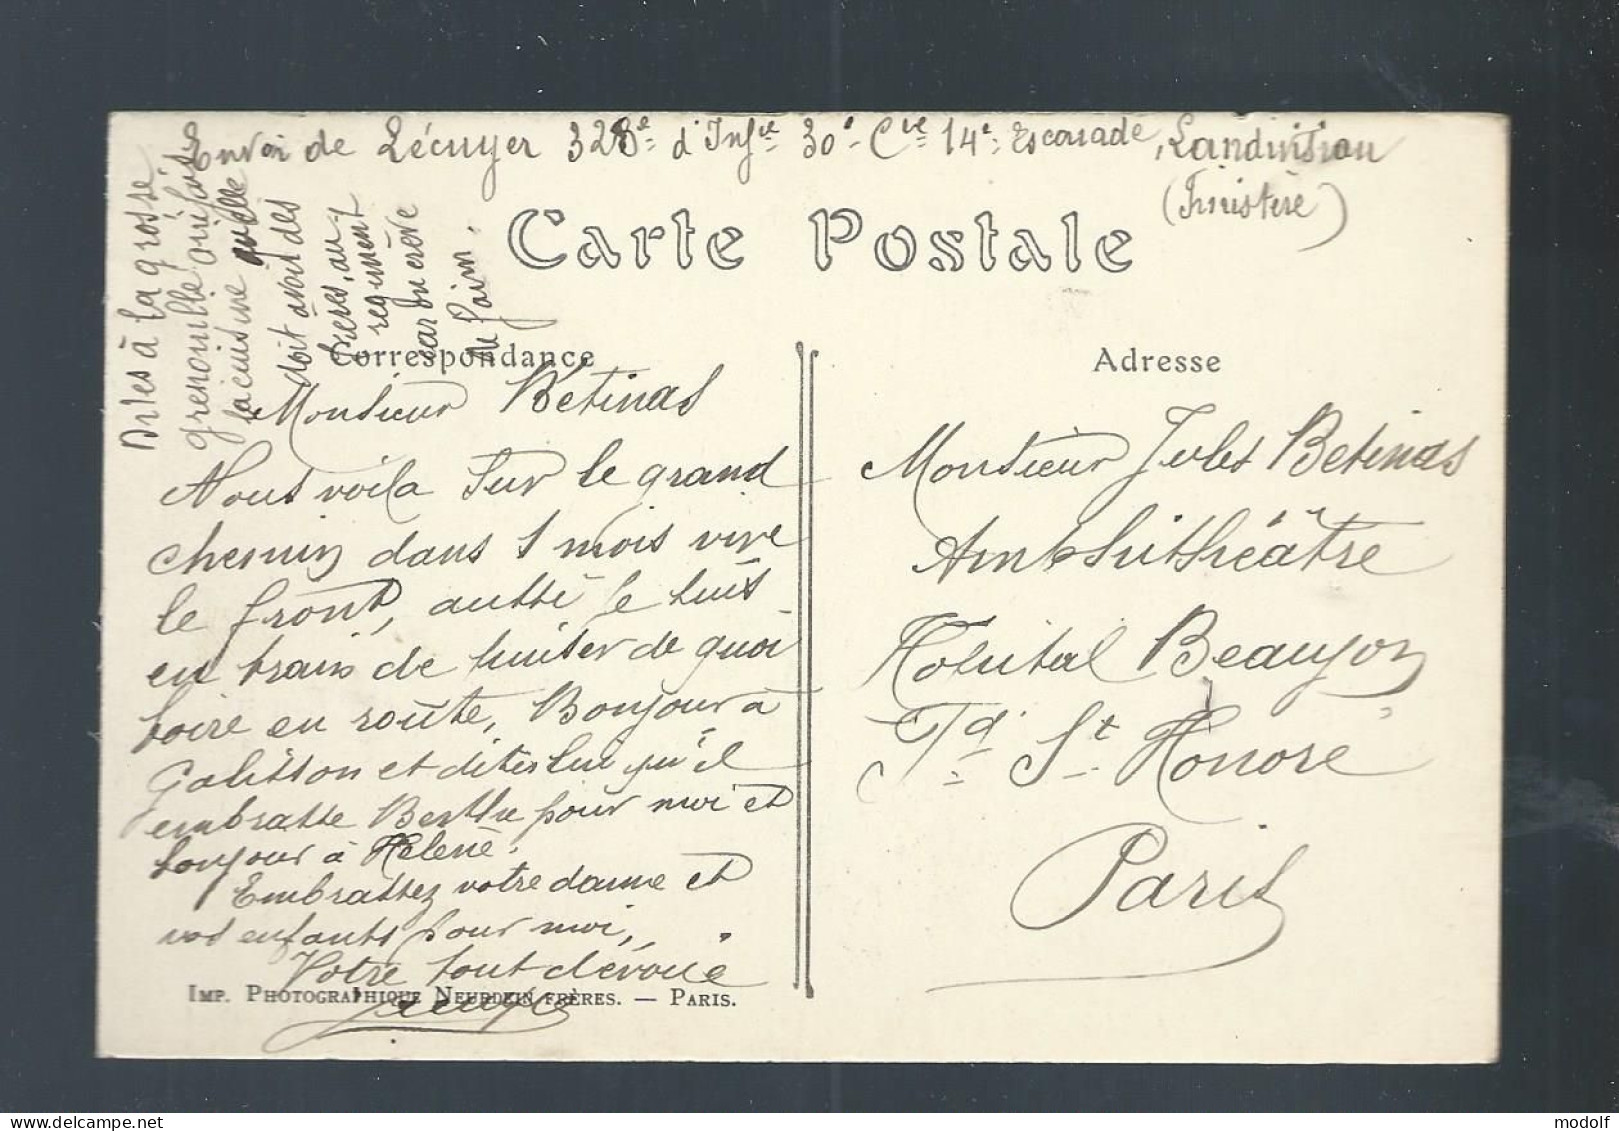 Envoi de Lécuyer 328e d'Infie 30e Cie 14e Escouade, Landivisiau
(Finistère)
Carte Postale
Dites à la grosse
grenouille qui fait
la cuisine qu'elle
doit avoir des
frères au
régiment
car on crève
de faim.
Correspondance
Adresse
Monsieur Bétinas
Nous voila sur le grand
chemin dans 1 mois vive
le front, aussi je suis
en train de puiser de quoi
boire en route, Bonjour à
Galisson et dites lui qu'il
embrasse Berthe pour moi et
bonjour à Helene.
Embrassez votre dame et
vos enfants pour moi,
Votre tout dévoué
Lecuyer
Monsieur Jules Betinas
Amphithéâtre
Hôpital Beaujon
Fg St Honore
Paris
Imp. Photographique Neurdein frères. — Paris.
modolf